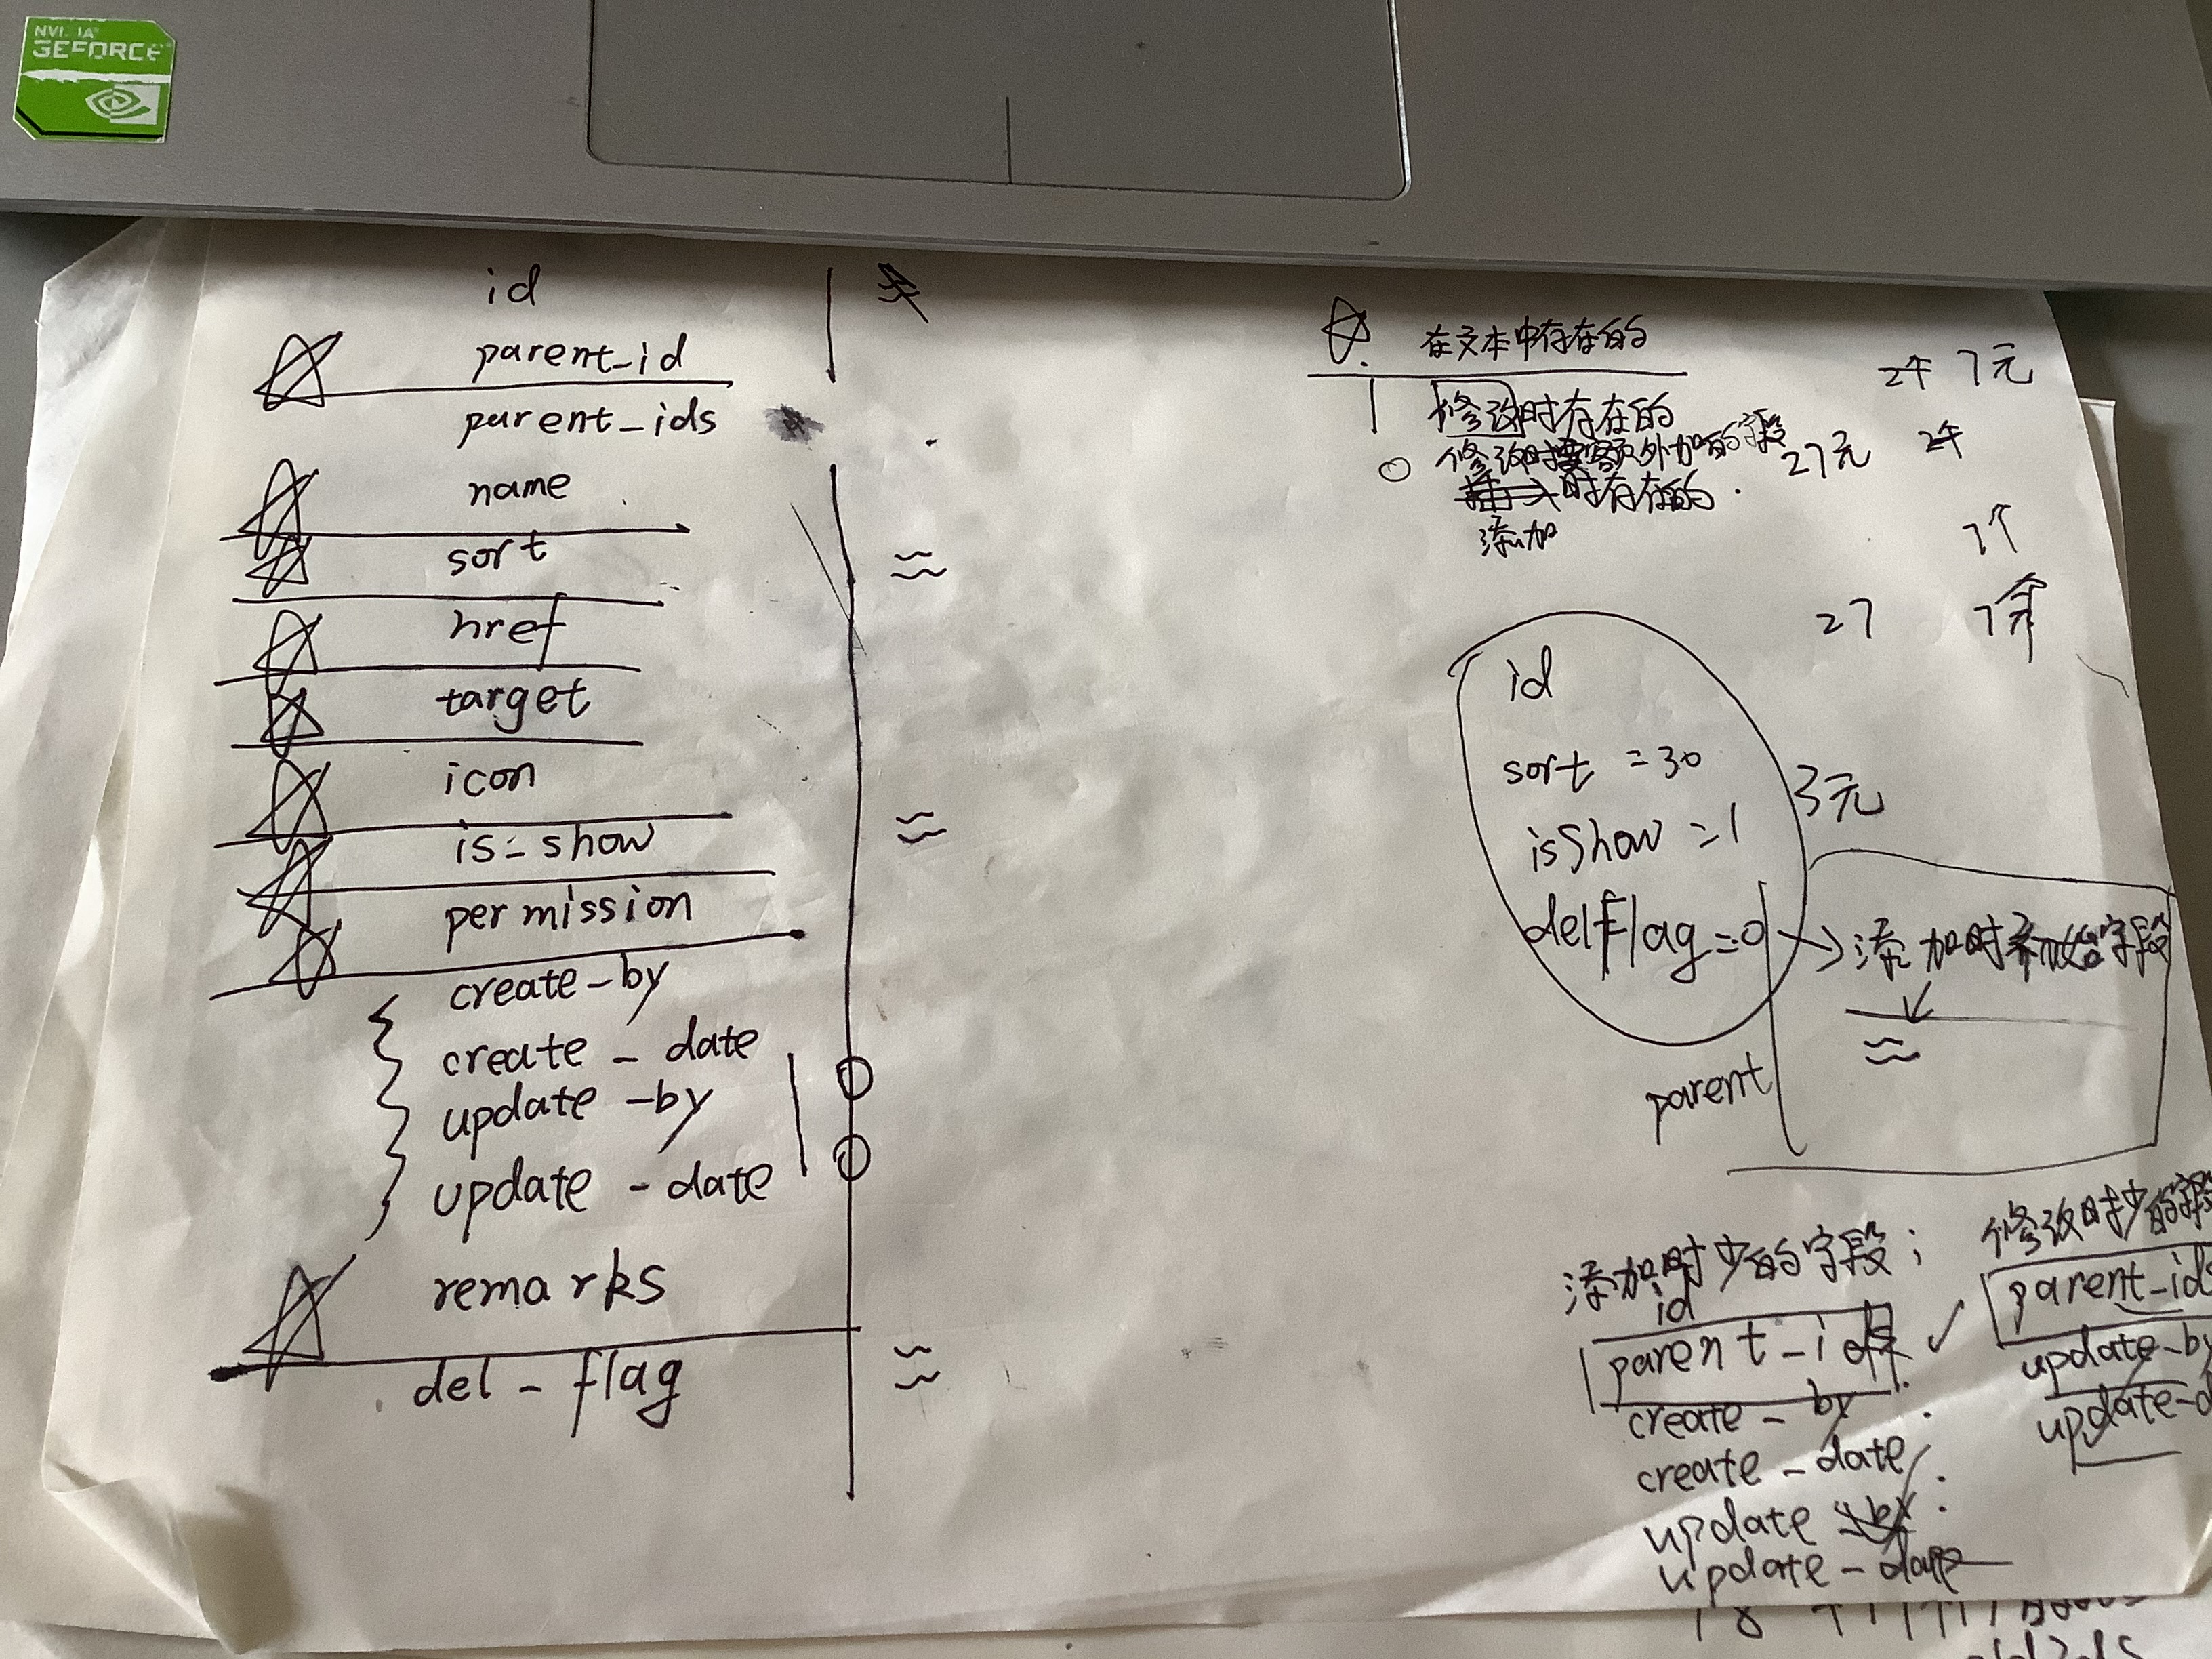 GEFORCE
id
parent_id
parent_ids
name
sort
href
target
icon
is-show
permission
create-by
create - date
update -by
update - date
remarks
del - flag
在文本中存在的
修改时存在的
修改时要额外加的字段
时存在的
添加
7元
27元
7个
27
id
sort =30
isShow =1
delFlag=0
3元
添加时初始字段
parent
添加时少的字段;
id
parent-id
create - by
create - date
update - by
update - date
修改时少的字段
parent-ids
update-by
update-d